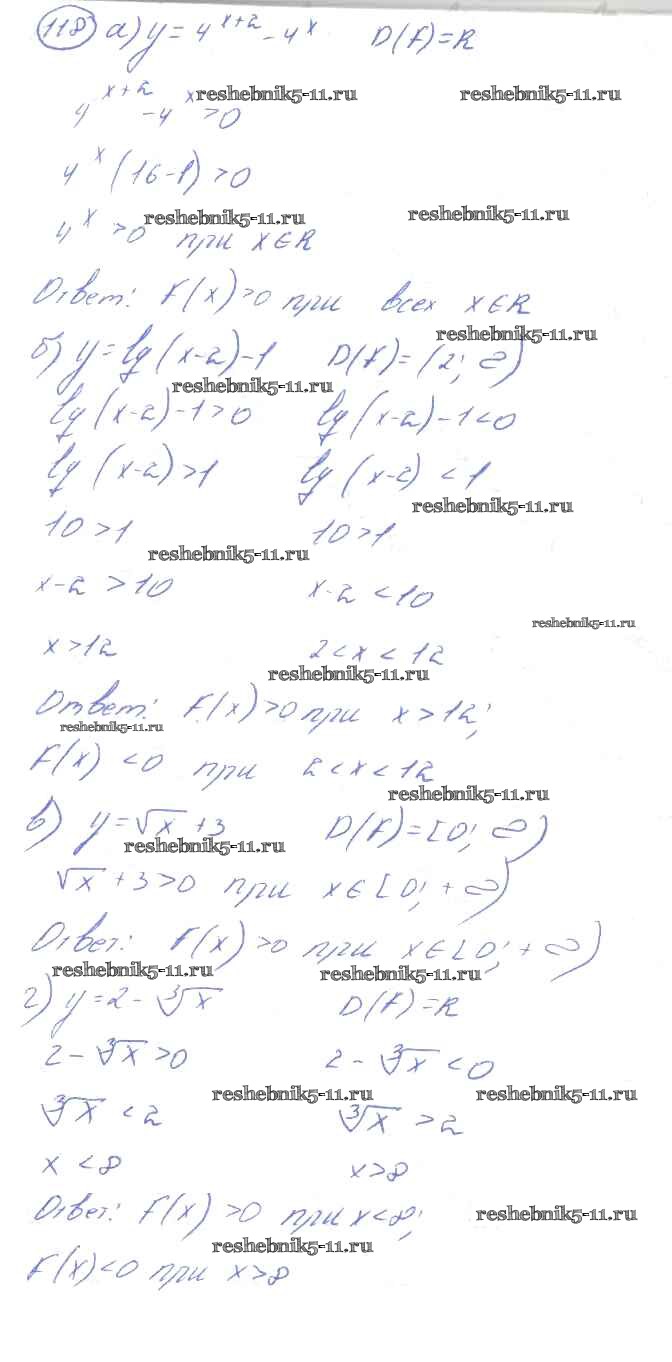 118 а) y = 4^{x+2} - 4^x   D(f) = R
4^{x+2} - 4^x > 0
reshebnik5-11.ru reshebnik5-11.ru
4^x (16-1) > 0
4^x > 0 при x ∈ R
reshebnik5-11.ru reshebnik5-11.ru
Ответ: f(x) > 0 при всех x ∈ R
reshebnik5-11.ru
б) y = lg(x-2) - 1   D(f) = (2; ∞)
reshebnik5-11.ru
lg(x-2) - 1 > 0   lg(x-2) - 1 < 0
lg(x-2) > 1   lg(x-2) < 1
reshebnik5-11.ru
10 > 1   10 > 1
reshebnik5-11.ru
x-2 > 10   x-2 < 10
reshebnik5-11.ru
x > 12   2 < x < 12
reshebnik5-11.ru
Ответ: f(x) > 0 при x > 12;
reshebnik5-11.ru
f(x) < 0 при 2 < x < 12
reshebnik5-11.ru
в) y = √x + 3   D(f) = [0; ∞)
reshebnik5-11.ru
√x + 3 > 0 при x ∈ [0; +∞)
Ответ: f(x) > 0 при x ∈ [0; +∞)
reshebnik5-11.ru reshebnik5-11.ru
г) y = 2 - ∛x   D(f) = R
2 - ∛x > 0   2 - ∛x < 0
reshebnik5-11.ru reshebnik5-11.ru
∛x < 2   ∛x > 2
x < 8   x > 8
Ответ: f(x) > 0 при x < 8;
reshebnik5-11.ru
reshebnik5-11.ru
f(x) < 0 при x > 8